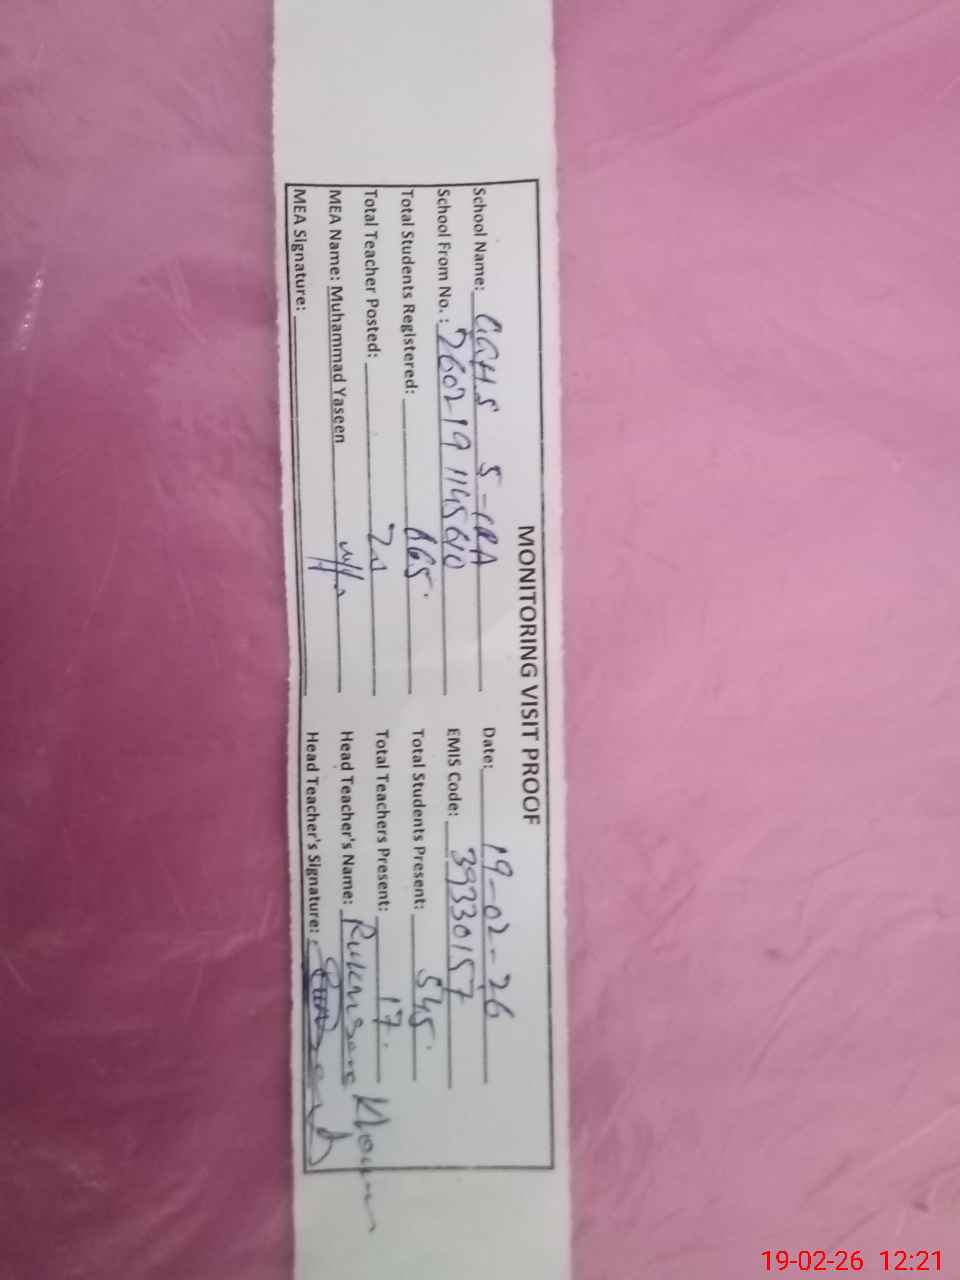 MONITORING VISIT PROOF
School Name: GGHS 5-CRA Date: 19-02-26
School From No.: 260219114560 EMIS Code: 39330157
Total Students Registered: 665 Total Students Present: 545
Total Teacher Posted: Total Teachers Present: 17
MEA Name: Muhammad Yaseen Head Teacher's Name: Rukhsana
MEA Signature: Head Teacher's Signature:
19-02-26 12:21